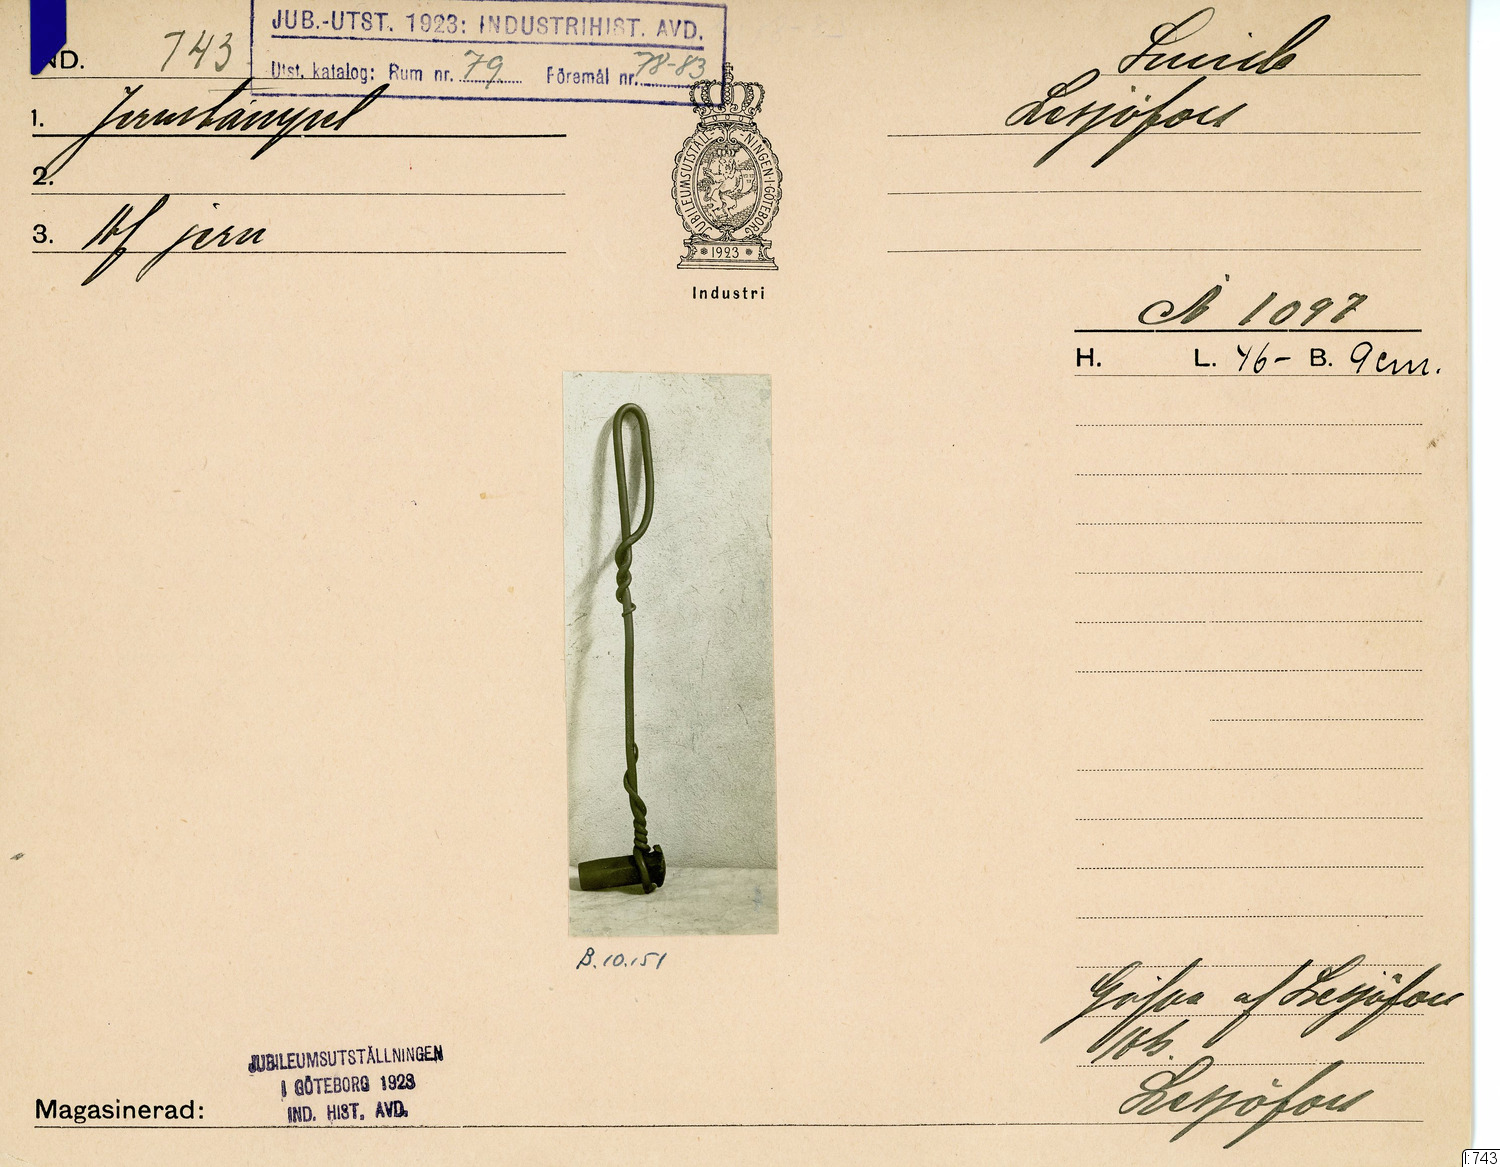 IND. 743
JUB.-UTST. 1923: INDUSTRIHIST. AVD.
Utst. katalog: Rum nr. 79 Föremål nr. 78-83
1. Jernstämpel
2.
3. Af jern
JUBILEUMSUTSTÄLLNINGEN I GÖTEBORG
1923
Industri
Smide
Lesjöfors
№ 1097
H. L. 46- B. 9 cm.
B.10.151
Gåfva af Lesjöfors
Ab.
Lesjöfors
JUBILEUMSUTSTÄLLNINGEN
I GÖTEBORG 1923
IND. HIST. AVD.
Magasinerad:
I:743